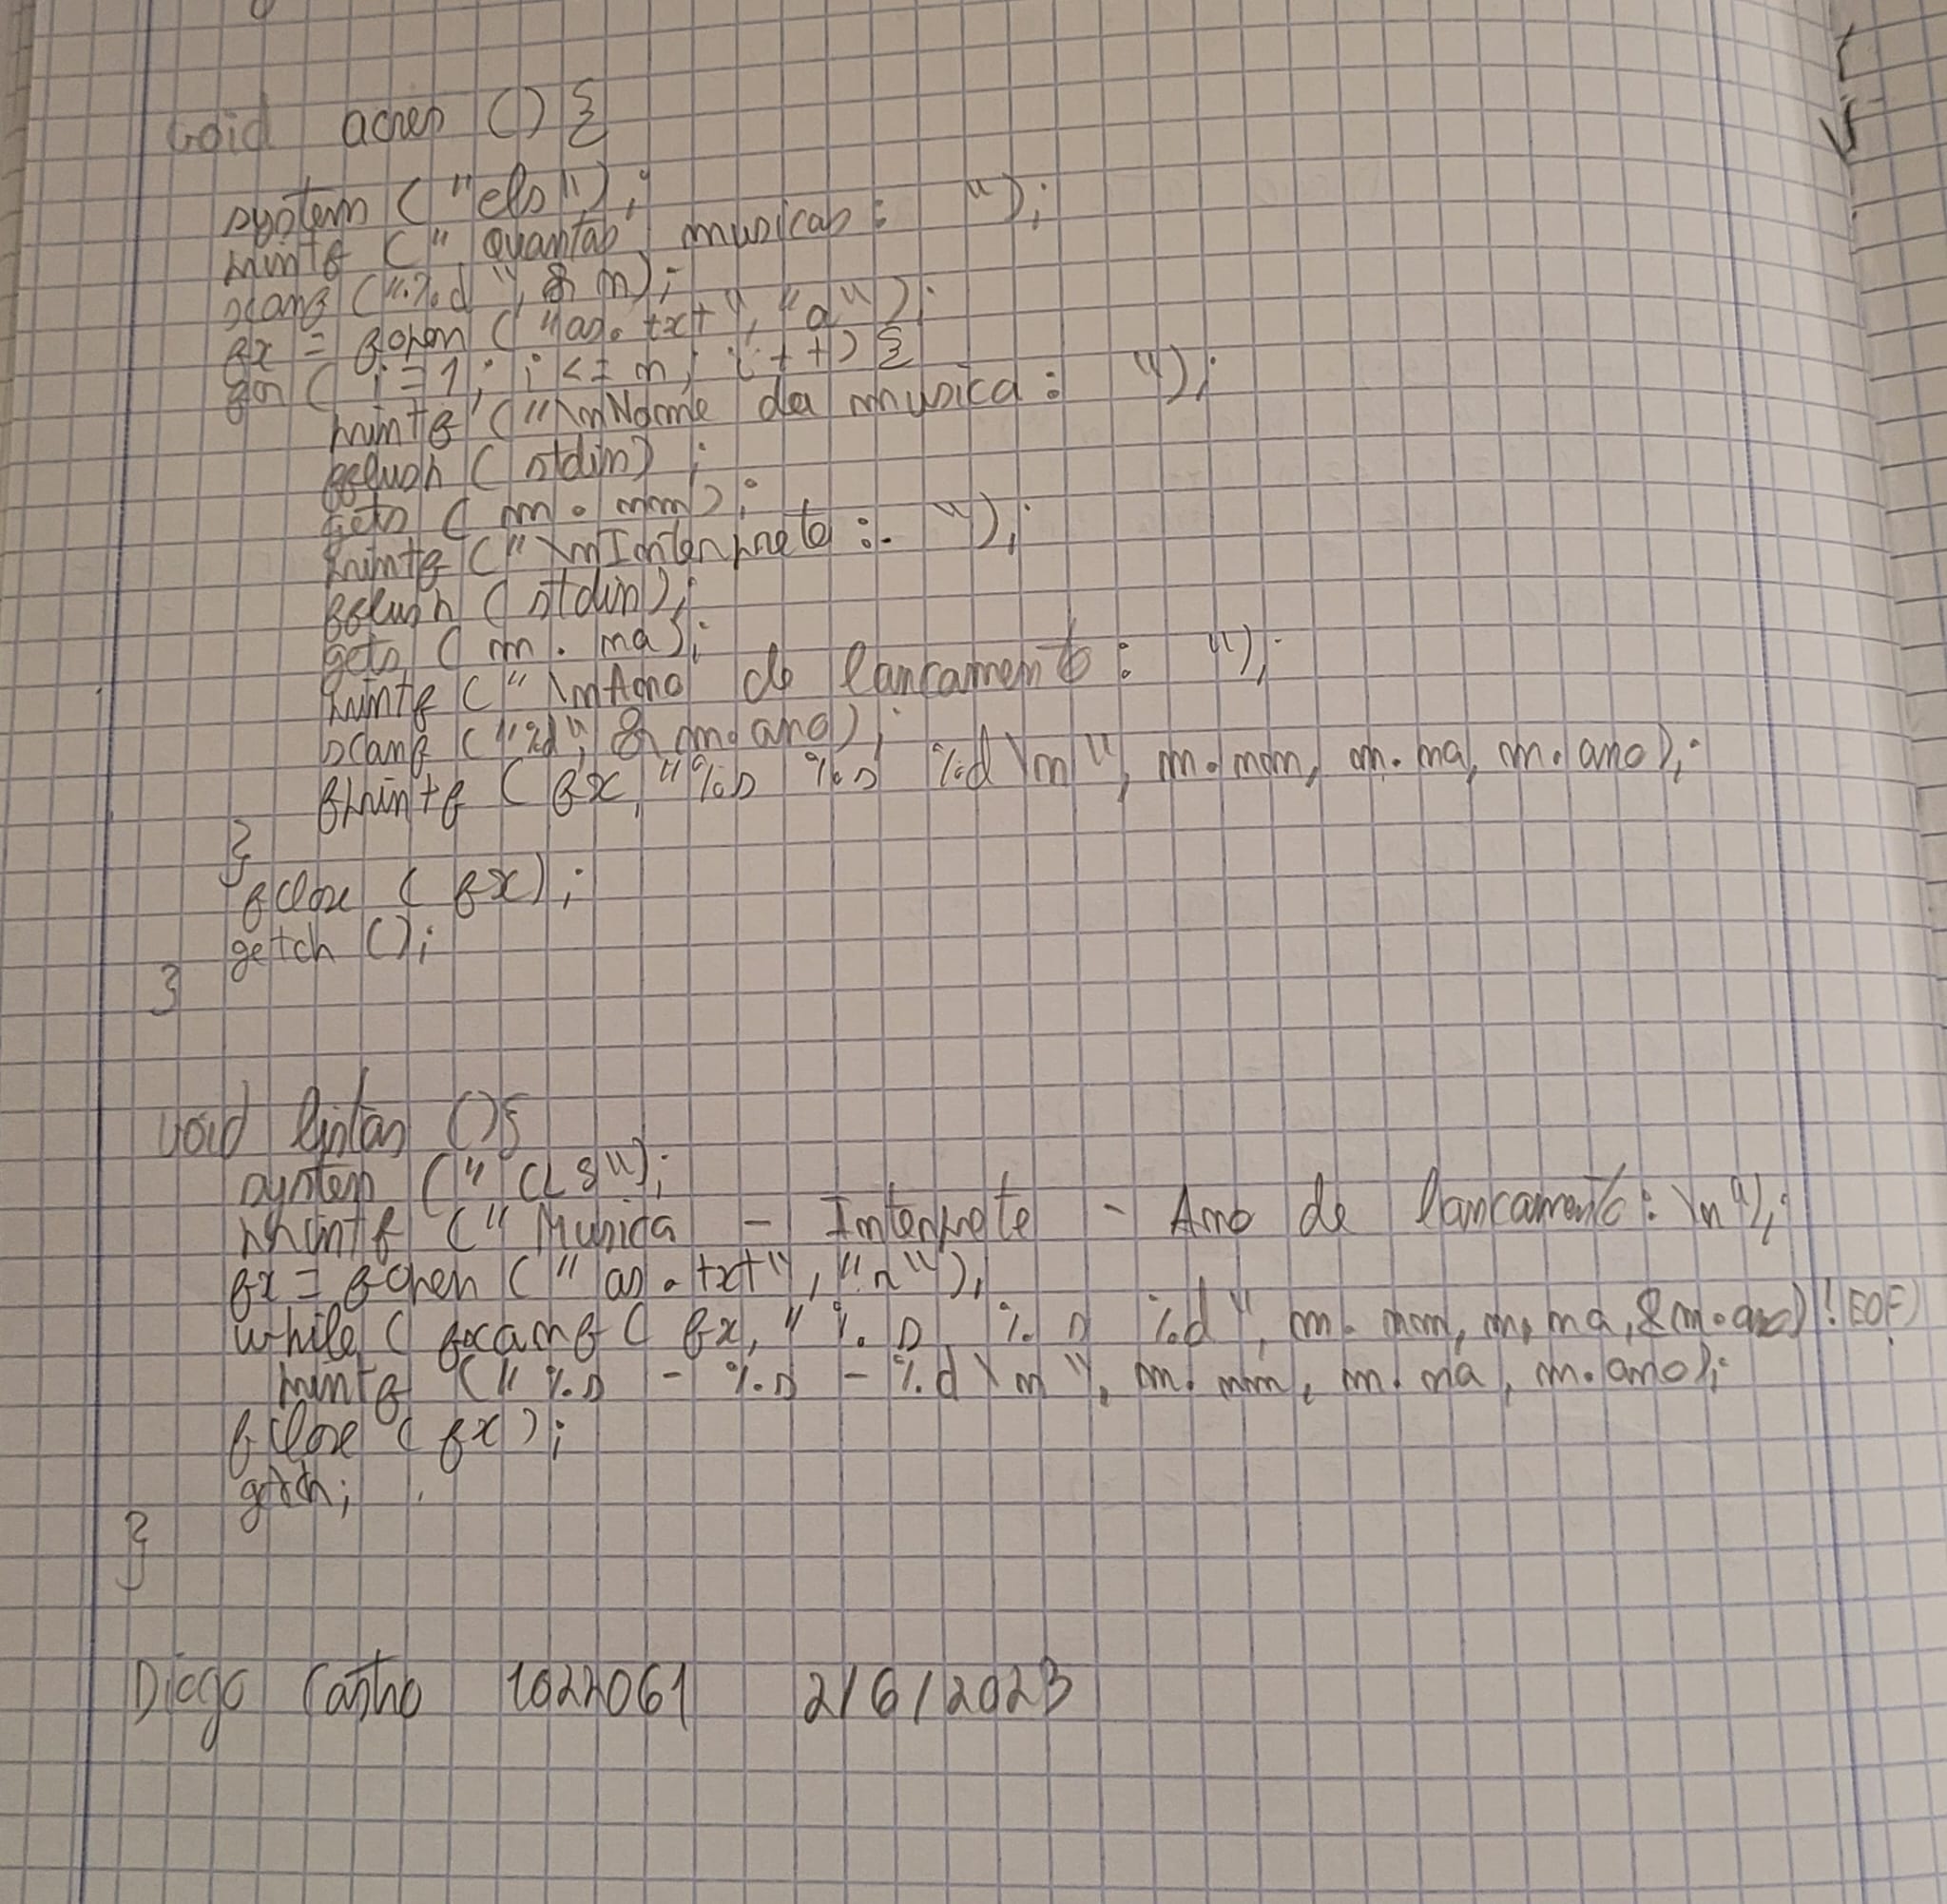 void acres () {
system ("cls");
printf ("Quantas musicas: ");
scanf ("%d", & n);
fx = fopen ("as.txt", "a");
for ( i=1; i<=n; i++) {
printf ("\nNome da musica: ");
fflush (stdin) ;
gets (m.nm);
printf ("\nInterprete: ");
fflush (stdin);
gets (m.ma);
printf ("\nAno de lancamento: ");
scanf ("%d", & m.ano);
fprintf (fx, "%s %s %d\n", m.nm, m.ma, m.ano);
}
fclose (fx);
getch ();
}
void listar (){
system ("CLS");
printf ("Musica - Interprete - Ano de lancamento: \n");
fx = fopen ("as.txt", "r");
while ( fscanf ( fx, "%s %s %d", m.nm, m.ma, &m.ano) != EOF)
printf ("%s - %s - %d\n", m.nm, m.ma, m.ano);
fclose (fx);
getch;
}
Diogo Castro 1022061 2/6/2023